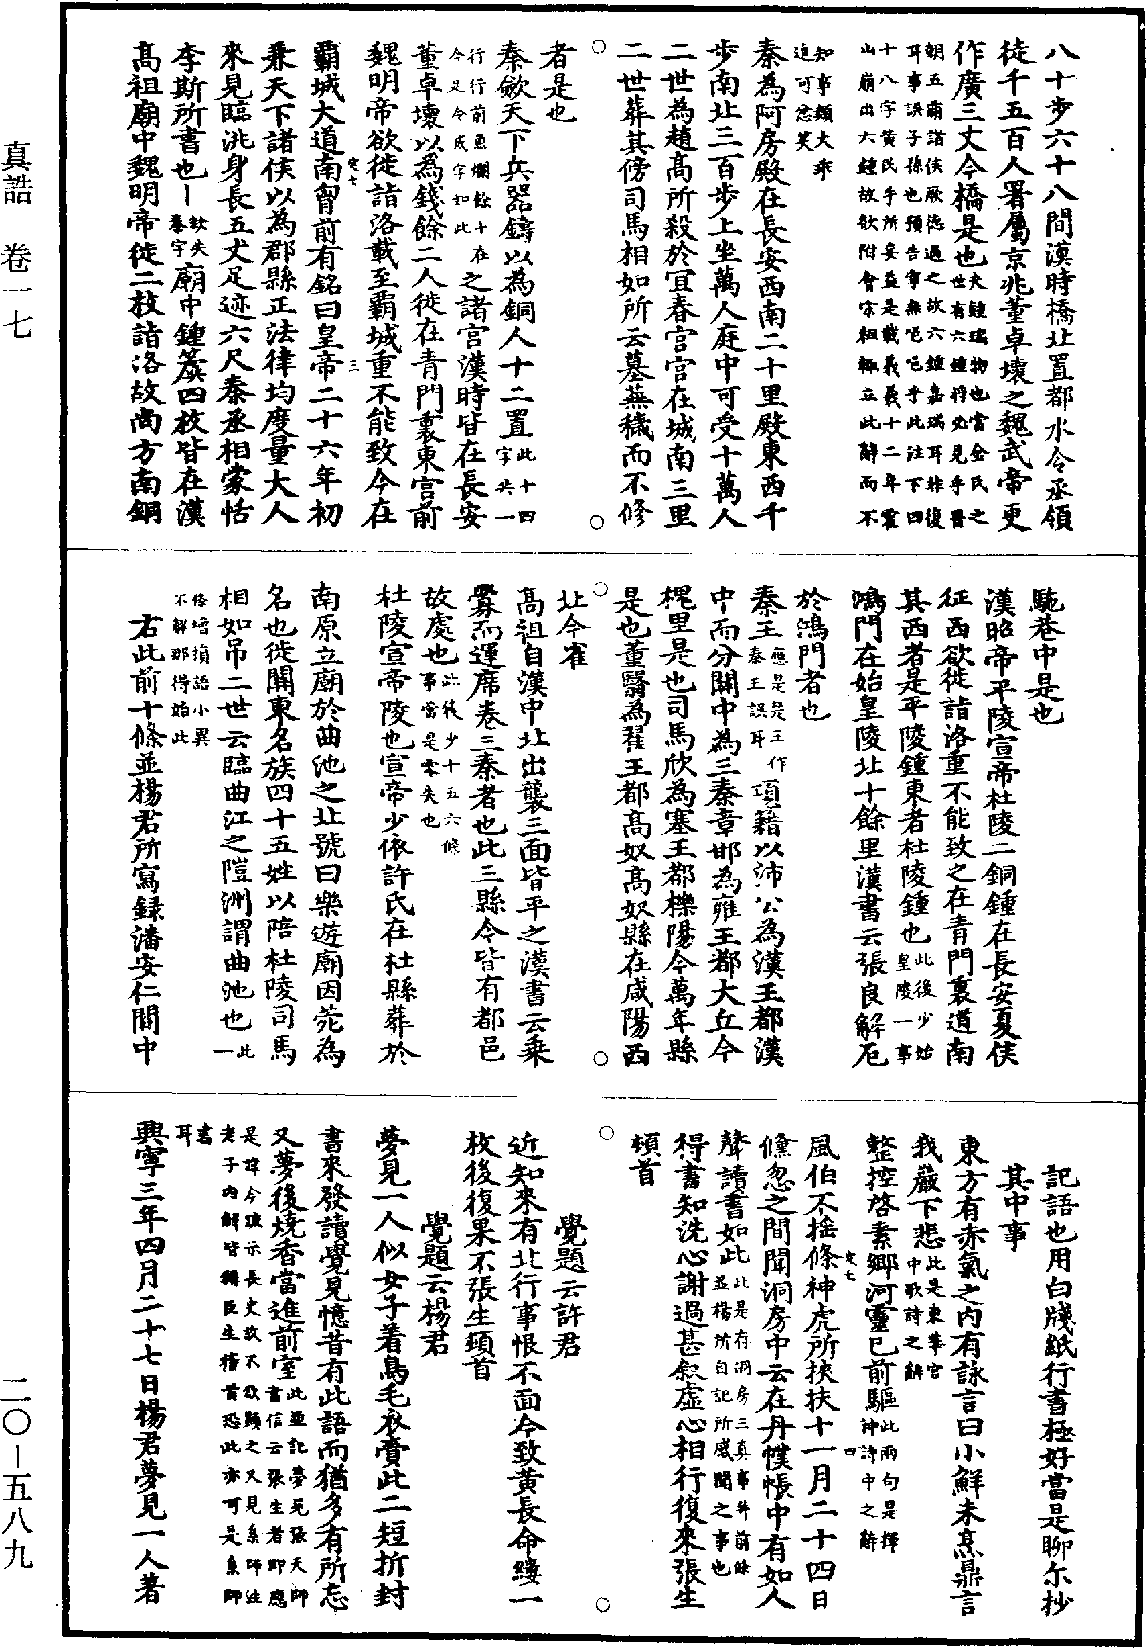 八十步六十八間漢時橋北置都水令丞領
徒千五百人署屬京兆董卓壞之魏武帝更
作廣三丈今橋是也夫鍾瑞物也當金氏之世有六鍾將必見乎晉
朝五廟諸侯厥德過之故六鍾嘉瑞耳非復耳事誤子孫也預告寧無咜咜乎此注下四
十八字黃民手所妄益是載義義十二年霍山崩出六鍾故欲附會宋祖輒立此辭而不
知事類大乖迫可忿笑
秦為阿房殿在長安西南二十里殿東西千
步南北三百步上坐萬人庭中可受十萬人
二世為趙高所殺於宜春宮宮在城南三里
二世葬其傍司馬相如所云墓蕪穢而不修
者是也
秦歛天下兵器鑄以為銅人十二置此十四字共一
行行前魚爛餘十在今足令成字如此之諸宮漢時皆在長安
董卓壞以為錢餘二人徙在青門裏東宮前
魏明帝欲徙詣洛載至覇城重不能致今在
定七 三
覇城大道南胷前有銘曰皇帝二十六年初
兼天下諸侯以為郡縣正法律均度量大人
來見臨洮身長五丈足迹六尺秦丞相蒙恬
李斯所書也欲失蹇字廟中鍾簴四枚皆在漢
高祖廟中魏明帝徙二枚詣洛故尚方南銅
馳巷中是也
漢昭帝平陵宣帝杜陵二銅鍾在長安夏侯
征西欲徙詣洛重不能致之在青門裏道南
其西者是平陵鍾東者杜陵鍾也此後少始皇陵一事
鴻門在始皇陵北十餘里漢書云張良解厄
於鴻門者也
秦王應是是王作秦王誤耳項籍以沛公為漢王都漢
中而分關中為三秦章邯為雍王都大丘今
槐里是也司馬欣為塞王都櫟陽今萬年縣
是也董翳為翟王都高奴高奴縣在咸陽西
北今雀
高祖自漢中北出襲三面皆平之漢書云乗
釁而運席卷三秦者也此三縣今皆有都邑
故處也此後少十五六條事當是零失也
杜陵宣帝陵也宣帝少依許氏在杜縣葬於
南原立廟於曲池之北號曰樂遊廟因苑為
名也徙關東名族四十五姓以陪杜陵司馬
相如吊二世云臨曲江之隑洲謂曲池也此一
條增損語小異不解那得始此
右此前十條並楊君所寫録潘安仁關中
記語也用白牋紙行書極好當是聊尓抄
其中事
東方有赤氣之内有詠言曰小鮮未烹鼎言
我巖下悲此是東華宮中歌詩之辭
整控啓素鄉河靈已前驅此兩句是擇神詩中之辭
定七 四
風伯不搖條神虎所挾扶十一月二十四日
儵忽之間聞洞房中云在丹幙帳中有如人
聲讀書如此此是存洞房三真事并前條並楊所自記所感聞之事也
得書知洗心謝過甚叙虛心相行復來張生
頓首
覺題云許君
近知來有北行事恨不面今致黃長命縷一
枚後復果不張生頭首
覺題云楊君
夢見一人似女子着鳥毛衣賫此二短折封
書來發讀覺見憶昔有此語而猶多有所忘
又夢後燒香當進前室此並記夢見張天師書信云張生者即應
是諱今疏示長史故不欲顯之又見系師注老子内解皆稱臣生稽首恐此亦可是系師
書耳
興寧三年四月二十七日楊君夢見一人著
真誥　卷一七
二〇—五八九